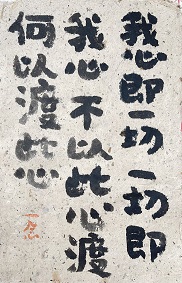 我心即一切一切即
我心不以此心渡
何以渡此心
一念